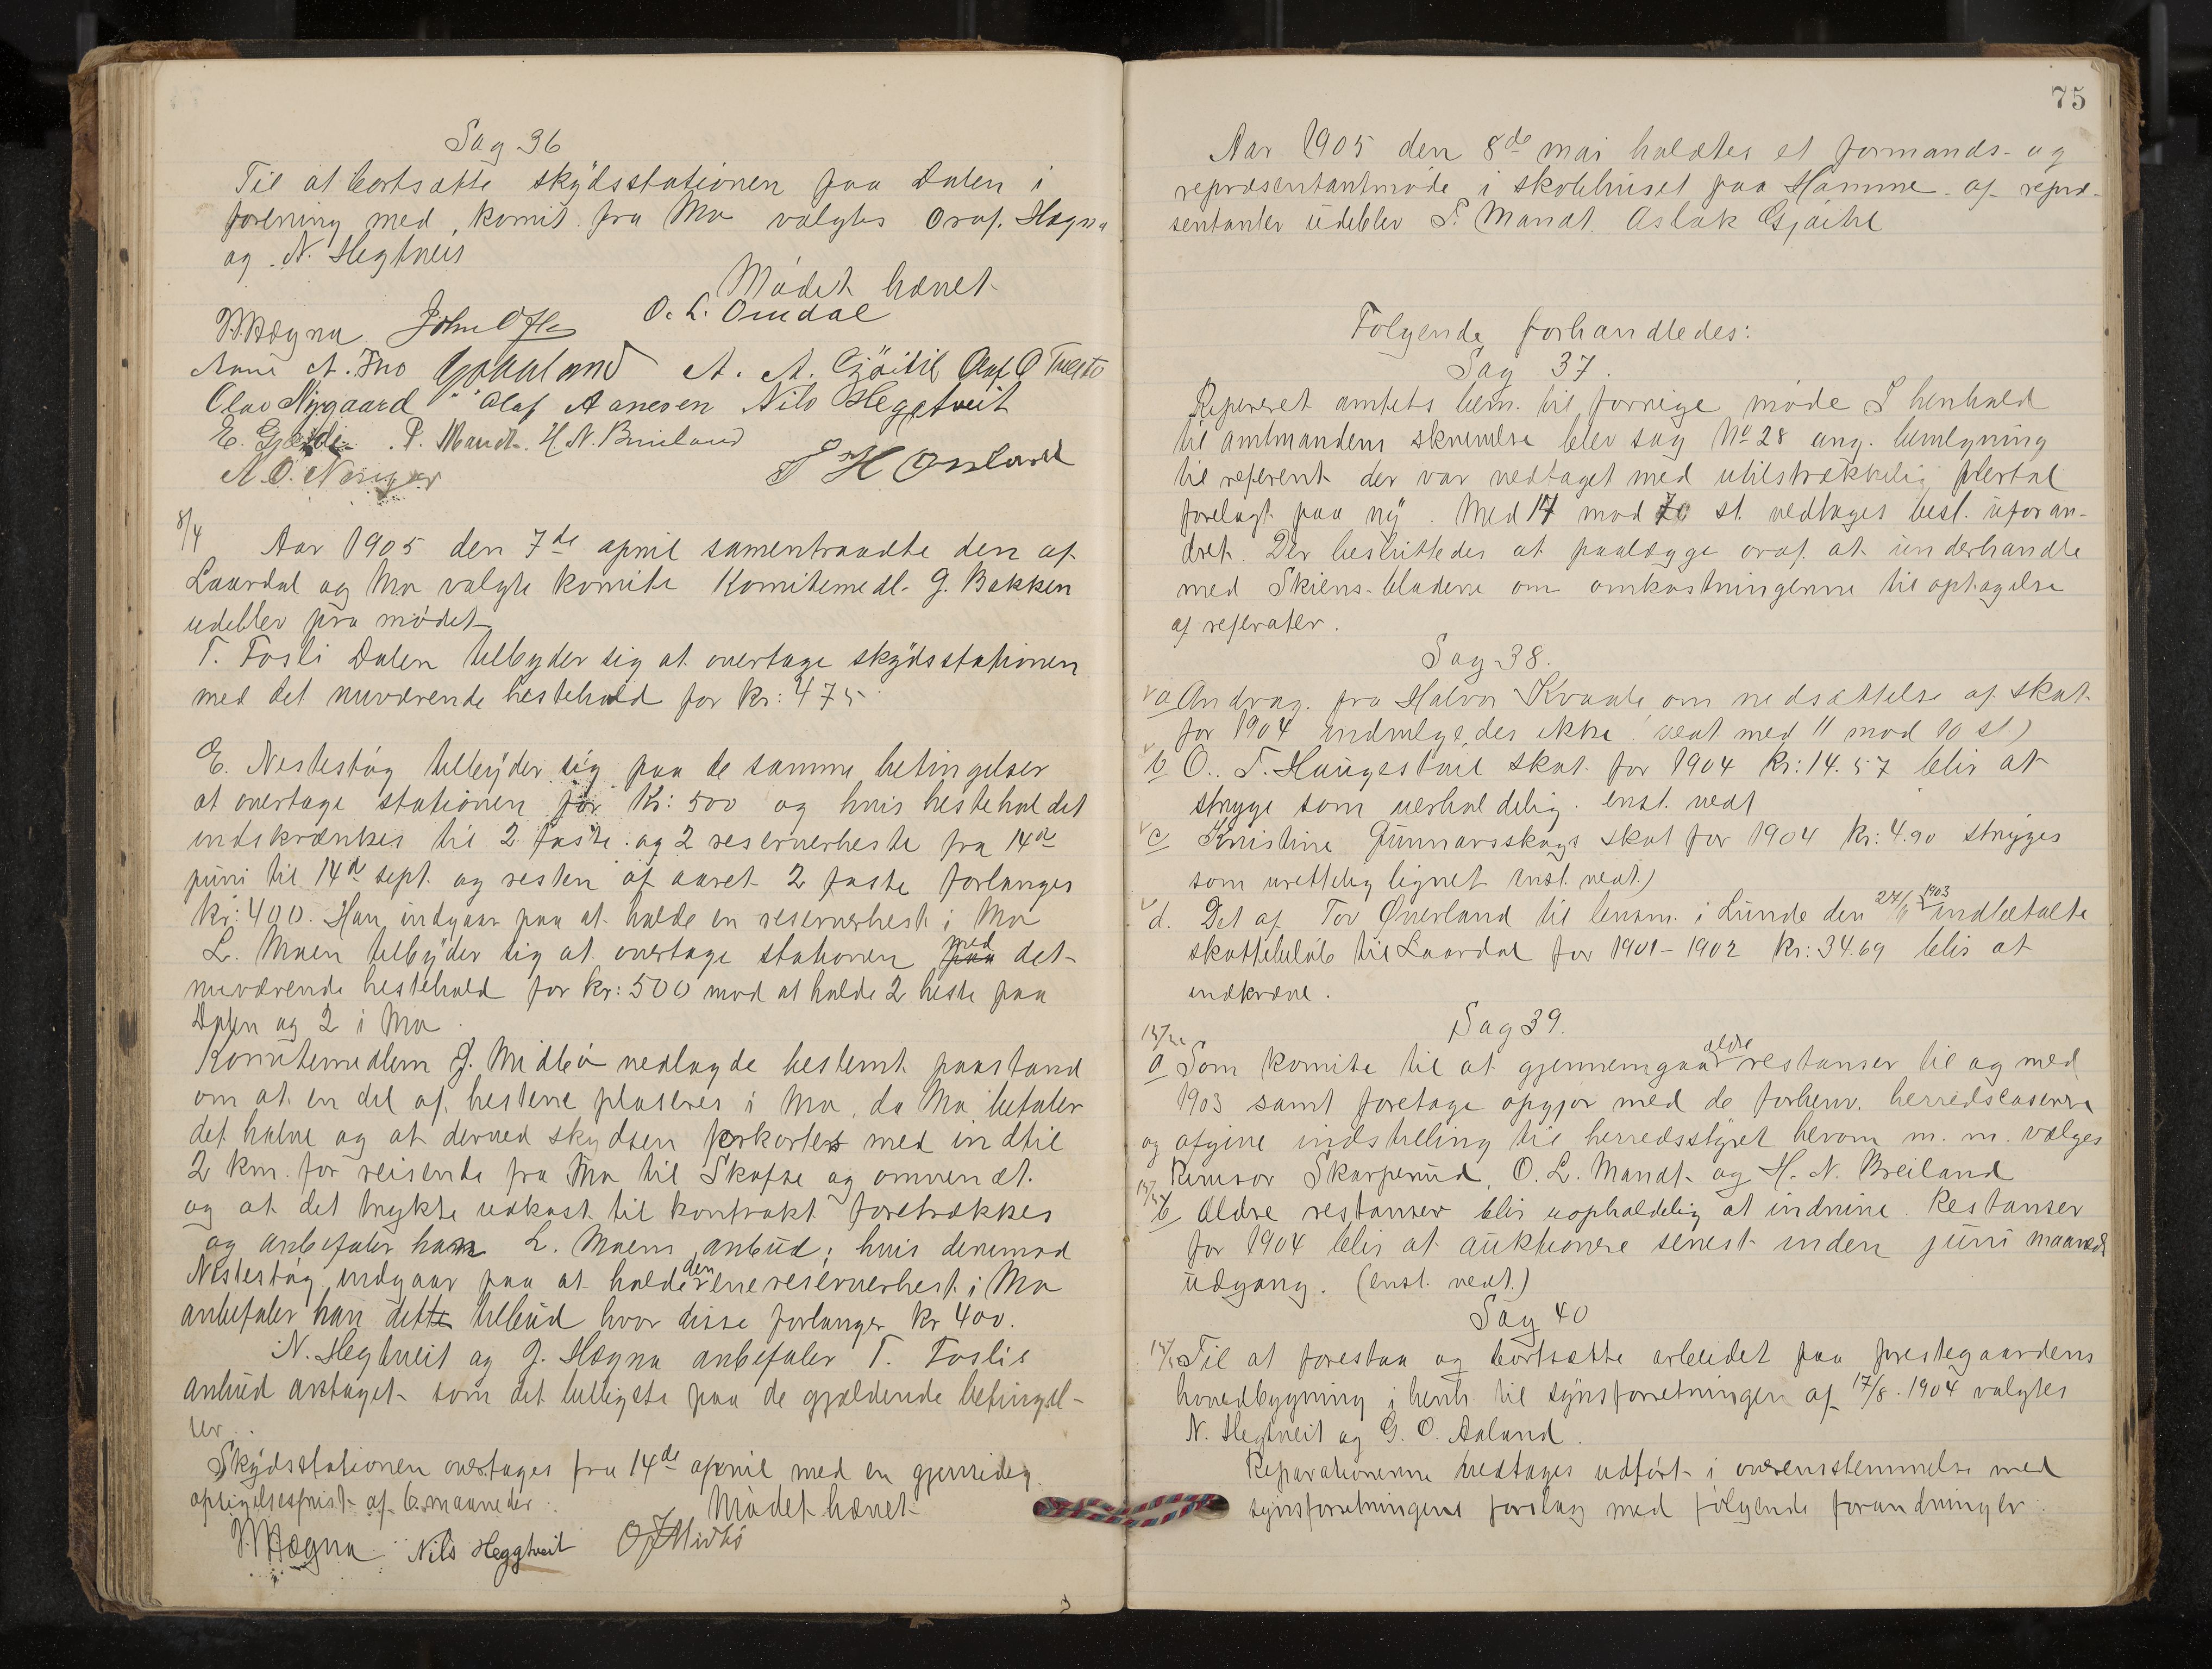 Sag 36
Til at bortsætte skydsstationen paa Dalen i
forening med komit. fra Mo valgtes Ordf. Hægna
og N. Hegtveit
Mødet hævet
O. L. Omdal
A. A. Gjøitil
Olav Nygaard Olaf Aanesen Nils Heggtveit
P. Mandt. H. N. Breiland
8/4
Aar 1905 den 7de april samentraadte den af
Laardal og Mo valgte komite Komitemedl. G. Bakken
udeblev fra mødet
T. Fosli Dalen tilbyder sig at overtage skydsstationen
med det nuværende hestehold for kr: 475
E. Nestestøg tilbyder sig paa de samme betingelser
at overtage stationen for Kr: 500 og hvis hesteholdet
indskrænkes til 2 faste og 2 reserverheste fra 14de
juni til 14de sept. og resten af aaret 2 faste forlanges
kr: 400. Han indgaar paa at holde en reserverhest i Mo
L. Moen tilbyder sig at overtage stationen med det
nuværende hestehold for kr: 500 mod at holde 2 heste paa
Dalen og 2 i Mo
Komitemedlem J. Midbø nedlagde bestemt paastand
om at en del af hestene plaseres i Mo, da Mo betaler
det halve og at derved skydsen forkortes med indtil
2 km. for reisende fra Mo til Skafse og omvendt.
og at det trykte udkast til kontrakt foretrækkes
og anbefaler han L. Moens anbud; hvis derimod
Nestestøg indgaar paa at holde den ene reserverhest i Mo
anbefaler han dette tilbud hvor disse forlanger kr 400.
N. Hegtveit og J. Hægna anbefaler T. Foslis
anbud antaget som det billigste paa de gjældende betingel-
ser.
Skydsstationen overtages fra 14de april med en gjensidig
opsigelsesfrist af 6 maaneder.
Mødet hævet
Hægna Nils Heggtveit O J Midbø
75
Aar 1905 den 8de mai holdtes et formands- og
repræsentantmøde i skolehuset paa Hamme. af repræ-
sentanter udeblev T. Mandt. Aslak Gjøitil
Følgende forhandledes:
Sag 37.
Refereret amtets bem. til forrige møde I henhold
til amtmandens skrivelse blev sag No 28 ang. bevilgning
til referent der var vedtaget med utilstrækkelig flertal
forelagt paa ny. Med 17 mod st. vedtages best. uforan-
dret. Der besluttedes at paalægge ordf. at underhandle
med Skiens-bladene om omkostningerne til optagelse
af referater.
Sag 38.
a Andrag. fra Halvor Kvaale om nedsættelse af skat
for 1904 indvilgedes ikke (vedt med 11 mod 10 st.)
b O. T. Haugestøil skat for 1904 kr: 14.57 blir at
stryge som uerholdelig. enst. vedt
c Kristine Gunnarsskogs skat for 1904 kr: 4.90 stryges
som urettelig lignet enst. vedt.)
d. Det af Tov Øverland til lensm. i Lunde den 24/11 1903 indbetalte
skattebeløb til Laardal for 1901-1902 kr: 34.69 blir at
indkræve.
Sag 39.
a Som komite til at gjennemgaa ældre restanser til og med
1903 samt foretage opgjør med de forhenv. herredskaserere
og afgive indstilling til herredsstyret herom m. m. vælges
Revisor Skarperud, O. L. Mandt og H. N. Breiland
b Ældre restanser blir uopholdelig at inddrive. Restanser
for 1904 blir at auktionere senest inden juni maaneds
udgang. (enst. vedt.)
Sag 40
Til at forestaa og bortsætte arbeidet paa prestegaardens
hovedbygning i henh. til synsforretningen af 17/8. 1904 valgtes
N. Hegtveit og G. O. Aaland.
Reparationerne vedtages udført i overensstemmelse med
synsforretningens forslag med følgende forandringer: